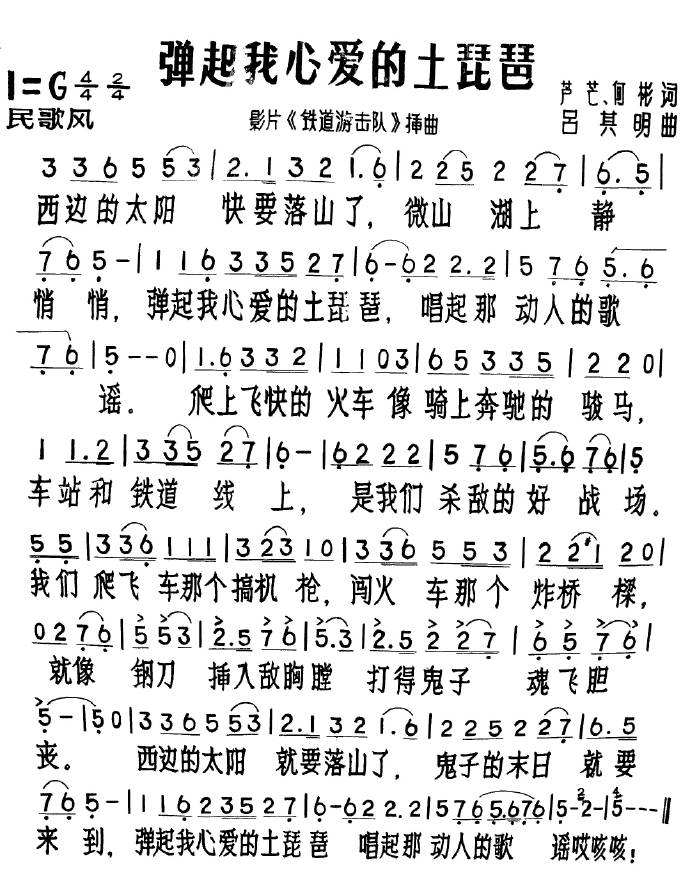 弹起我心爱的土琵琶
1=G 4/4 2/4
芦芒、何彬词
民歌风
影片《铁道游击队》插曲
吕其明曲
3 3 6 5 5 5 3 | 2. 1 3 2 1. 6 | 2 2 5 2 2 2 7 | 6. 5
西边的太阳 快要落山了, 微山 湖上 静
7 6 5 - | 1 1 6 3 3 5 2 7 | 6 - 6 2 2 2. 2 | 5 7 6 5. 6
悄 悄, 弹起我心爱的土琵琶, 唱起那 动人的歌
7 6 | 5 - - 0 | 1. 6 3 3 2 | 1 1 0 3 | 6 5 3 3 5 | 2 2 0
谣. 爬上飞快的 火车 像 骑上奔驰的 骏马,
1 1. 2 | 3 3 5 2 7 | 6 - | 6 2 2 2 | 5 7 6 | 5. 6 7 6 | 5
车站和 铁道 线 上, 是我们 杀敌的好 战 场.
5 5 | 3 3 6 1 1 1 | 3 2 3 1 0 | 3 3 6 5 5 3 | 2 2 1 2 0
我们 爬飞 车那个搞机 枪, 闯火 车那个 炸桥 樑,
0 2 7 6 | 5 5 3 | 2. 5 7 6 | 5. 3 | 2. 5 2 2 2 7 | 6 5 7 6
就像 钢刀 插入敌胸膛 打得鬼子 魂飞胆
5 - | 5 0 | 3 3 6 5 5 5 3 | 2. 1 3 2 1. 6 | 2 2 5 2 2 7 | 6. 5
丧. 西边的太阳 就要落山了, 鬼子的末日 就要
7 6 5 - | 1 1 6 2 3 5 2 7 | 6 - 6 2 2. 2 | 5 7 6 5. 6 7 6 | 5 - 2 - | 5 - - - ‖
来 到, 弹起我心爱的土琵琶 唱起那动人的歌 谣哎咳咳!